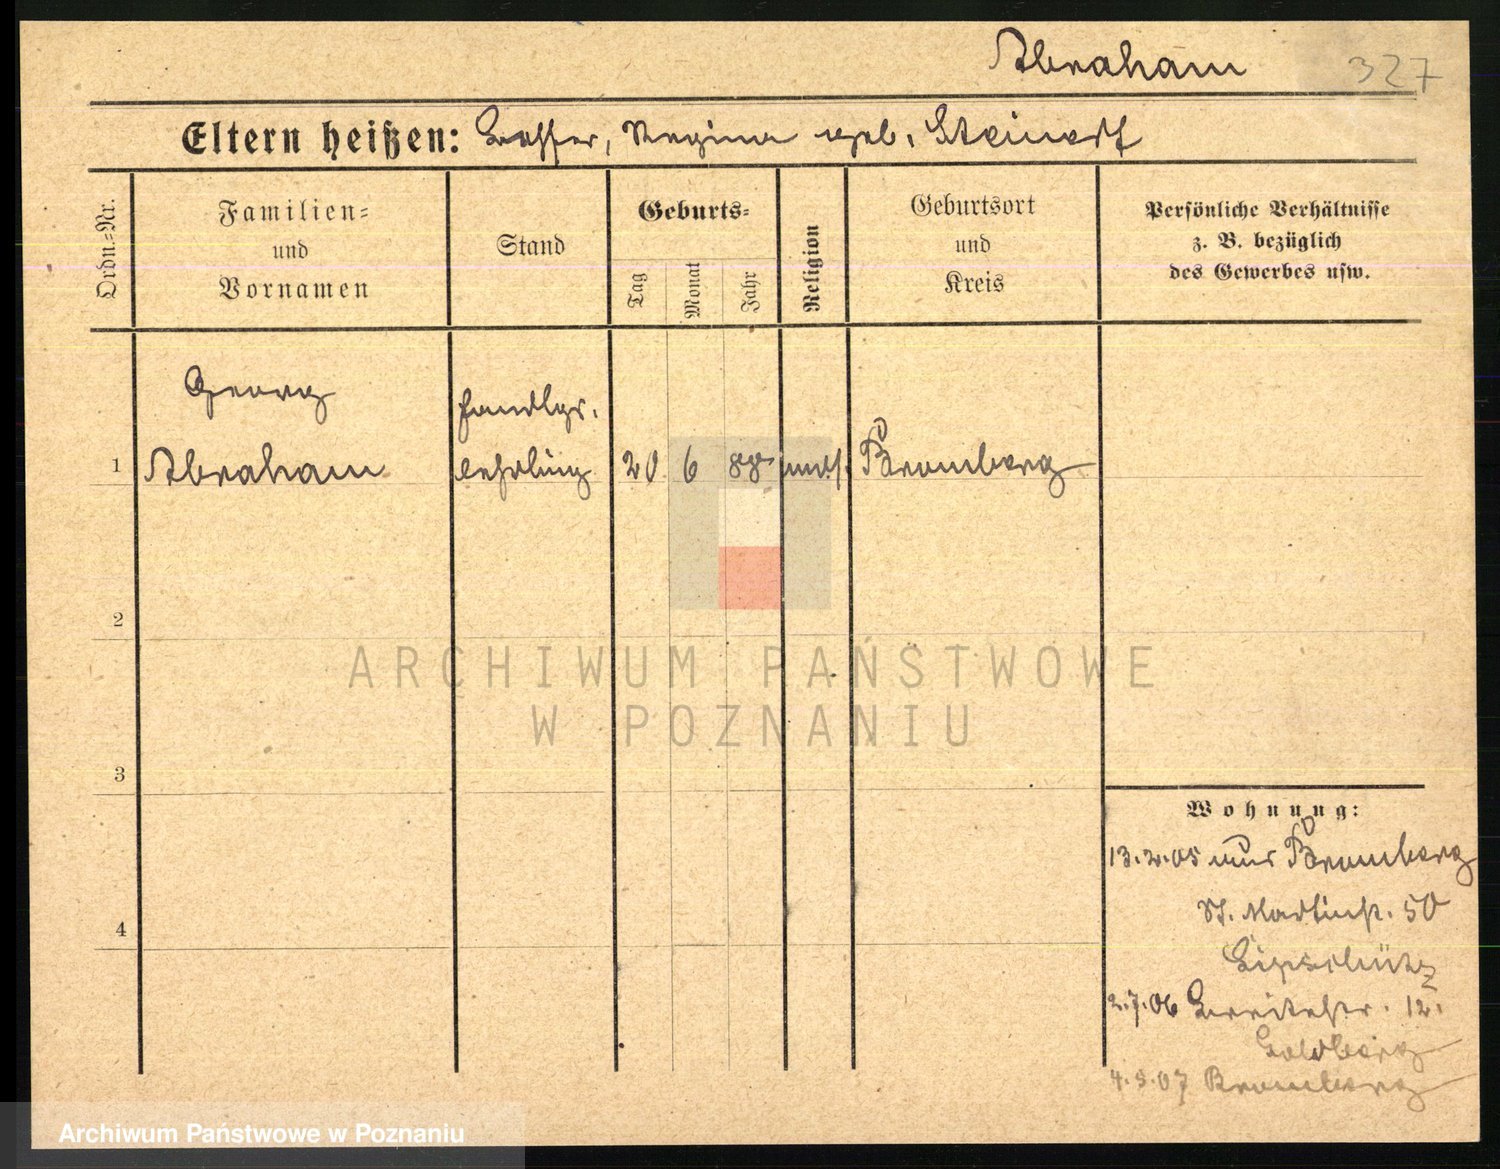 Abraham 327
Eltern heißen: Lesser, Regina geb. Steinert
Ordn.=Nr.
Familien=
und
Vornamen
Stand
Geburts=
Tag
Monat
Jahr
Religion
Geburtsort
und
Kreis
Persönliche Verhältnisse
z. B. bezüglich
des Gewerbes usw.
Georg
Handlgs.
1 Abraham lehrling 20 6 88 mos. Bromberg
2
3
4
Wohnung:
13.2.05 aus Bromberg
St. Martinstr. 50
Lipschütz
2.7.06 Breitestr. 12.
Goldberg
07 Bromberg
ARCHIWUM PAŃSTWOWE
W POZNANIU
Archiwum Państwowe w Poznaniu